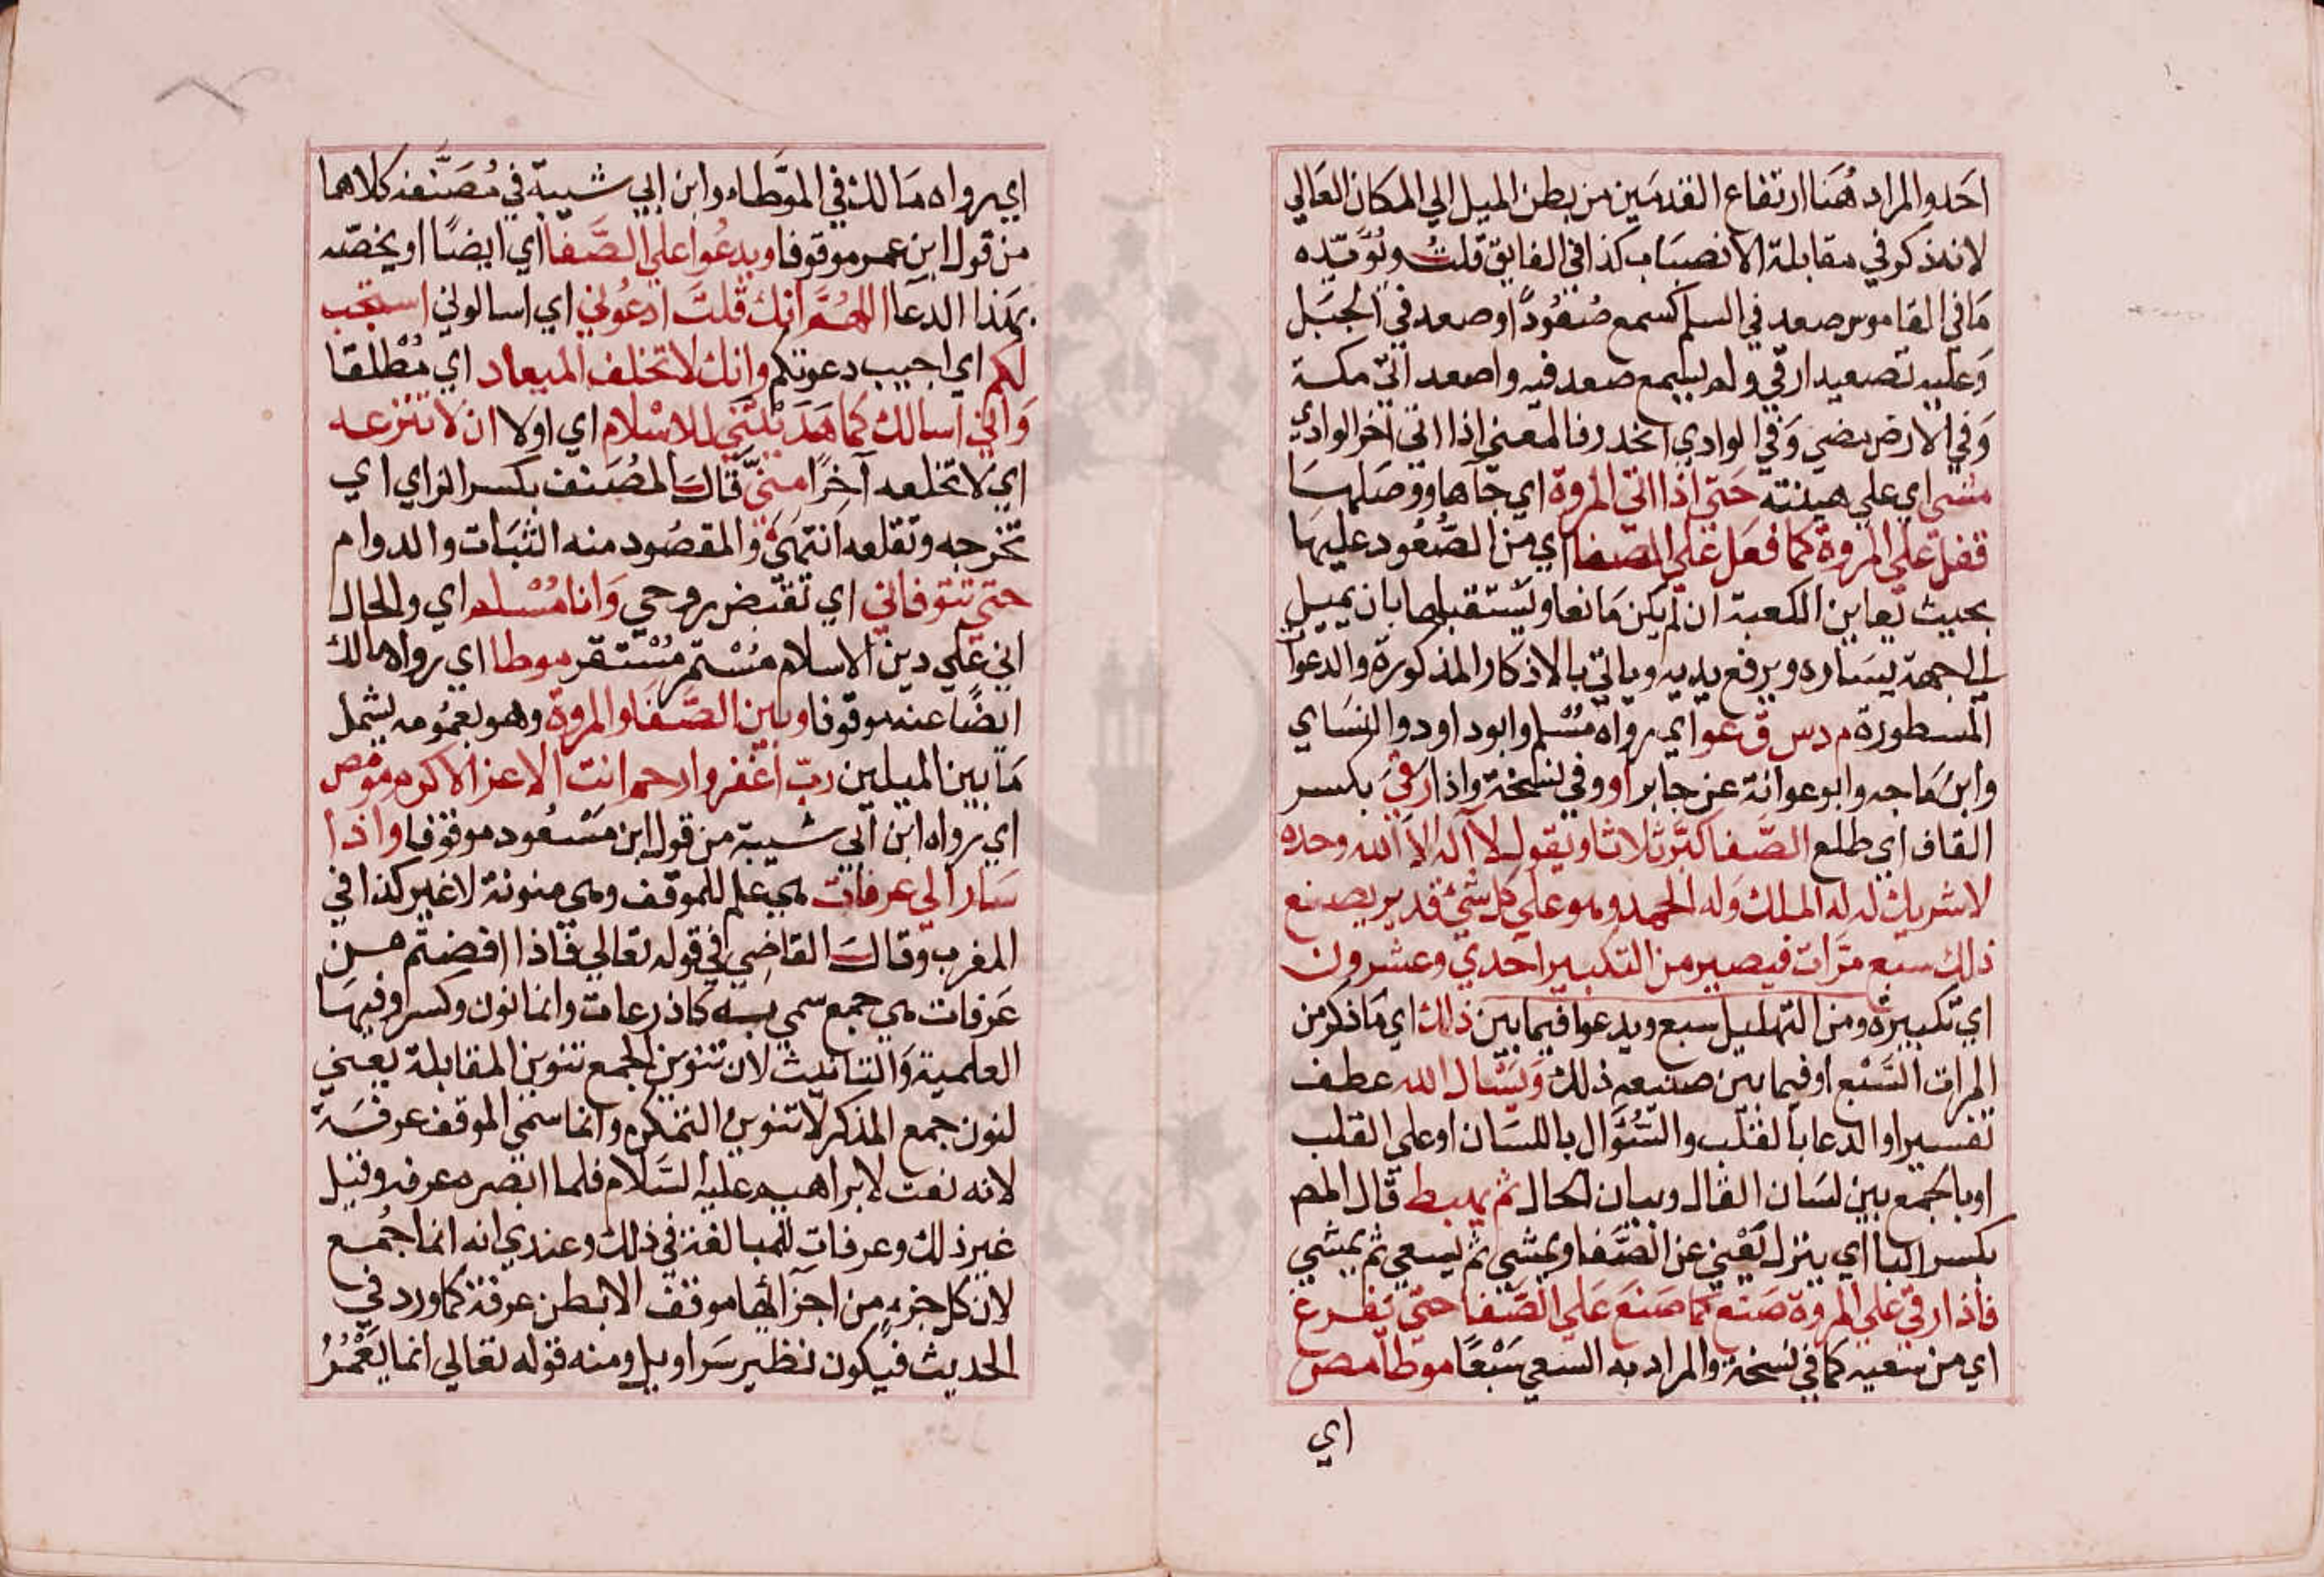 احد والمراد هنا ارتفاع القدمين من بطن الميل الي المكان العالي
لانه ذكر في مقابلة الانصباب كذا في الفايق قلت ويؤيده
ما في القاموس صعد في السلم كسمع صعودا وصعد في الجبل
وعليه تصعيد ارقي ولم يسمع صعد فيه واصعد اتي مكة
وفي الارض مضي وفي الوادي انحدر فالمعني اذا اتي اخر الوادي
مشي اي علي هينته حتي اذا اتي المروة اي جآها ووصلها
ففعل علي المروة كما فعل علي الصفا اي من الصعود عليها
بحيث يعاين الكعبة ان لم يكن مانعا ويستقبلها بان يميل
الي جهة يساره ويرفع يديه وياتي بالاذكار المذكورة والدعوا
المسطورة م د س ق عو اي رواه مسلم وابوداود والنساي
وابن ماجه وابوعوانة عن جابر او وفي نسخة واذا رقي بكسر
القاف اي طلع الصفا كبر ثلاثا ويقول لا اله الا الله وحده
لا شريك له له الملك وله الحمد وهو علي كل شيئ قدير يصنع
ذلك سبع مرات فيصير من التكبير احدي وعشرون
اي تكبيرة ومن التهليل سبع ويدعوا فيما بين ذلك اي ما ذكر من
المرات السبع او فيما بين صنيعه ذلك ويسال الله عطف
تفسير او الدعا بالقلب والسؤال باللسان او علي القلب
او بالجمع بين لسان القال وبيان الحال ثم يهبط قال المص
بكسر البا اي ينزل يعني عن الصفا ويمشي ثم يسعي ثم يمشي
فاذا رقي علي المروة صنع كما صنع علي الصفا حتي يفرغ
اي من سعيه كما في نسخة والمراد به السعي سبعا موطا مص
اي
اي رواه مالك في الموطاء وابن ابي شيبة في مصنفه كلاهما
من قول ابن عمر موقوفا ويدعوا علي الصفا اي ايضا او يخصه
بهذا الدعا اللهم انك قلت ادعوني اي اسالوني استجب
لكم اي اجيب دعوتكم وانك لا تخلف الميعاد اي مطلقا
واني اسالك كما هديتني للاسلام اي اولا ان لا تنزعه
اي لا تخلعه آخرا مني قال المصنف بكسر الزاي اي
تخرجه وتقلعه انتهي والمقصود منه الثبات والدوام
حتي تتوفاني اي تقبض روحي وانا مسلم اي والحال
اني علي دين الاسلام مستمر مستقر موطا اي رواه مالك
ايضا عنه موقوفا وبين الصفا والمروة وهو بعمومه يشمل
ما بين الميلين رب اغفر وارحم انت الاعز الاكرم مو مص
اي رواه ابن ابي شيبة من قول ابن مسعود موقوفا واذا
سارا لي عرفات هي علم للموقف وهي منونة لا غير كذا في
المغرب وقال القاضي في قوله تعالي فاذا افضتم من
عرفات هي جمع سمي به كاذرعات وانما نون وكسر وفيها
العلمية والتانيث لان تنوين الجمع تنوين المقابلة يعني
لنون جمع المذكر لا تنوين التمكن وانما سمي الموقف عرفة
لانه نعت لابراهيم عليه السلام فلما ابصره عرفه وقيل
غير ذلك وعرفات للمبالغة في ذلك وعندي انه انما جمع
لان كل جزء من اجزآئها موقف الا بطن عرفة كما ورد في
الحديث فيكون نظير سراويل ومنه قوله تعالي انما يعمر